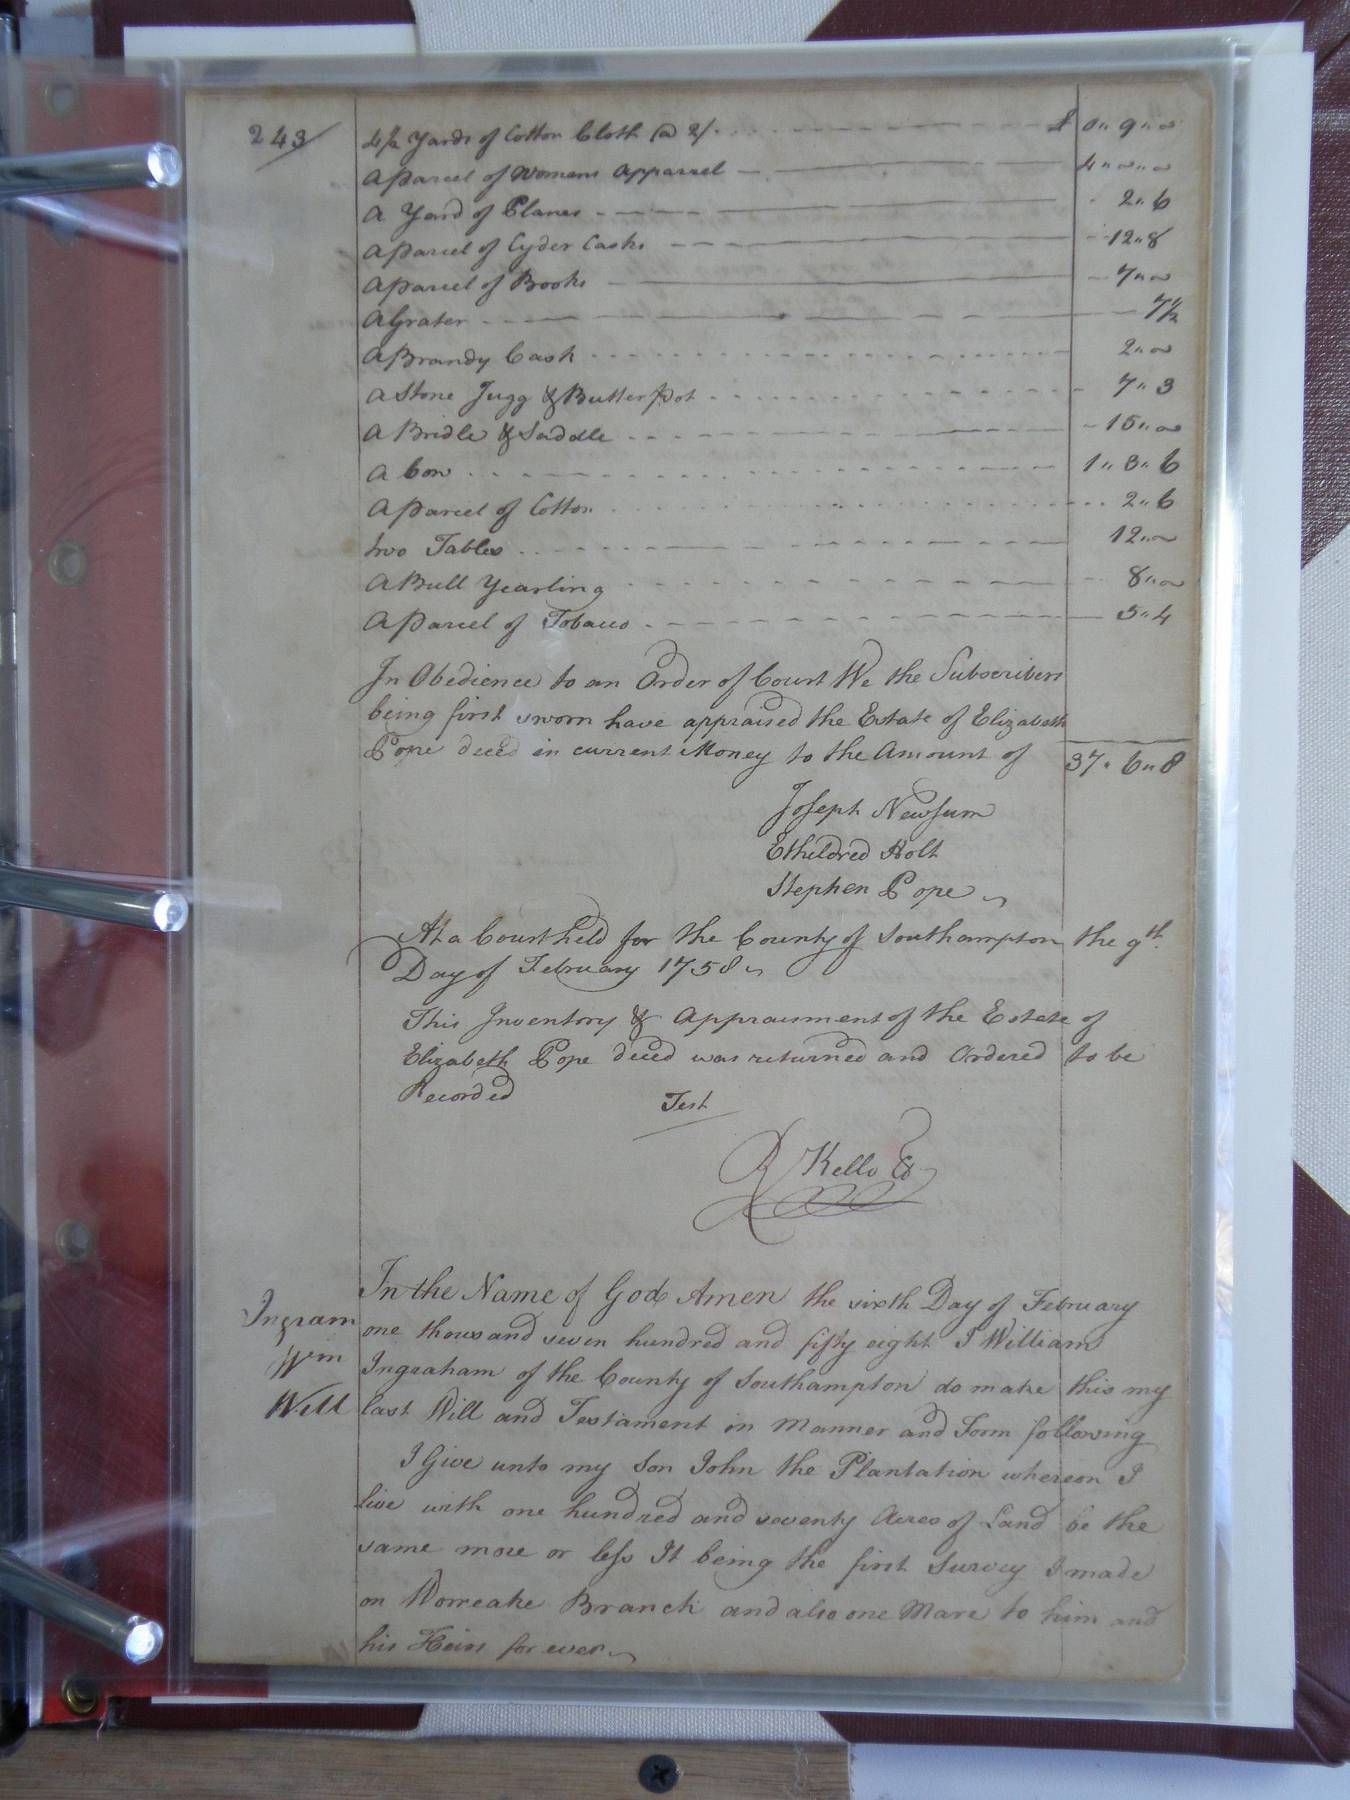 243
4½ Yards of Cotton Cloth @ 2/. £ 0" 9" "
A Parcel of Womens Apparrel 4" " "
A Yard of Planes 2" 6
A Parcel of Cyder Casks 12" 8
A Parcel of Books 7" "
A Grater 7½
A Brandy Cask 2" "
A Stone Jugg & Butter Pot 7" 3
A Bridle & Saddle 15" "
A Cow 1" 3" 6
A Parcel of Cotton 2" 6
two Tables 12" "
A Bull Yearling 8" "
A Parcel of Tobacco 5" 4
In Obedience to an Order of Court We the Subscribers
being first sworn have appraised the Estate of Elizabeth
Pope deced in current Money to the Amount of 37" 6" 8
Joseph Newsum
Ethildred Holt
Stephen Pope
At a Court held for the County of Southampton the 9th.
Day of February 1758
This Inventory & Appraisment of the Estate of
Elizabeth Pope deced was returned and Ordered to be
Recorded
Test
R Kello
Ingram
Wm
Will
In the Name of God Amen the sixth Day of February
one thousand seven hundred and fifty eight I William
Ingraham of the County of Southampton do make this my
last Will and Testament in Manner and Form following
I Give unto my Son John the Plantation whereon I
live with one hundred and seventy Acres of Land be the
same more or less It being the first Survey I made
on Branch and also one Mare to him and
his Heirs for ever